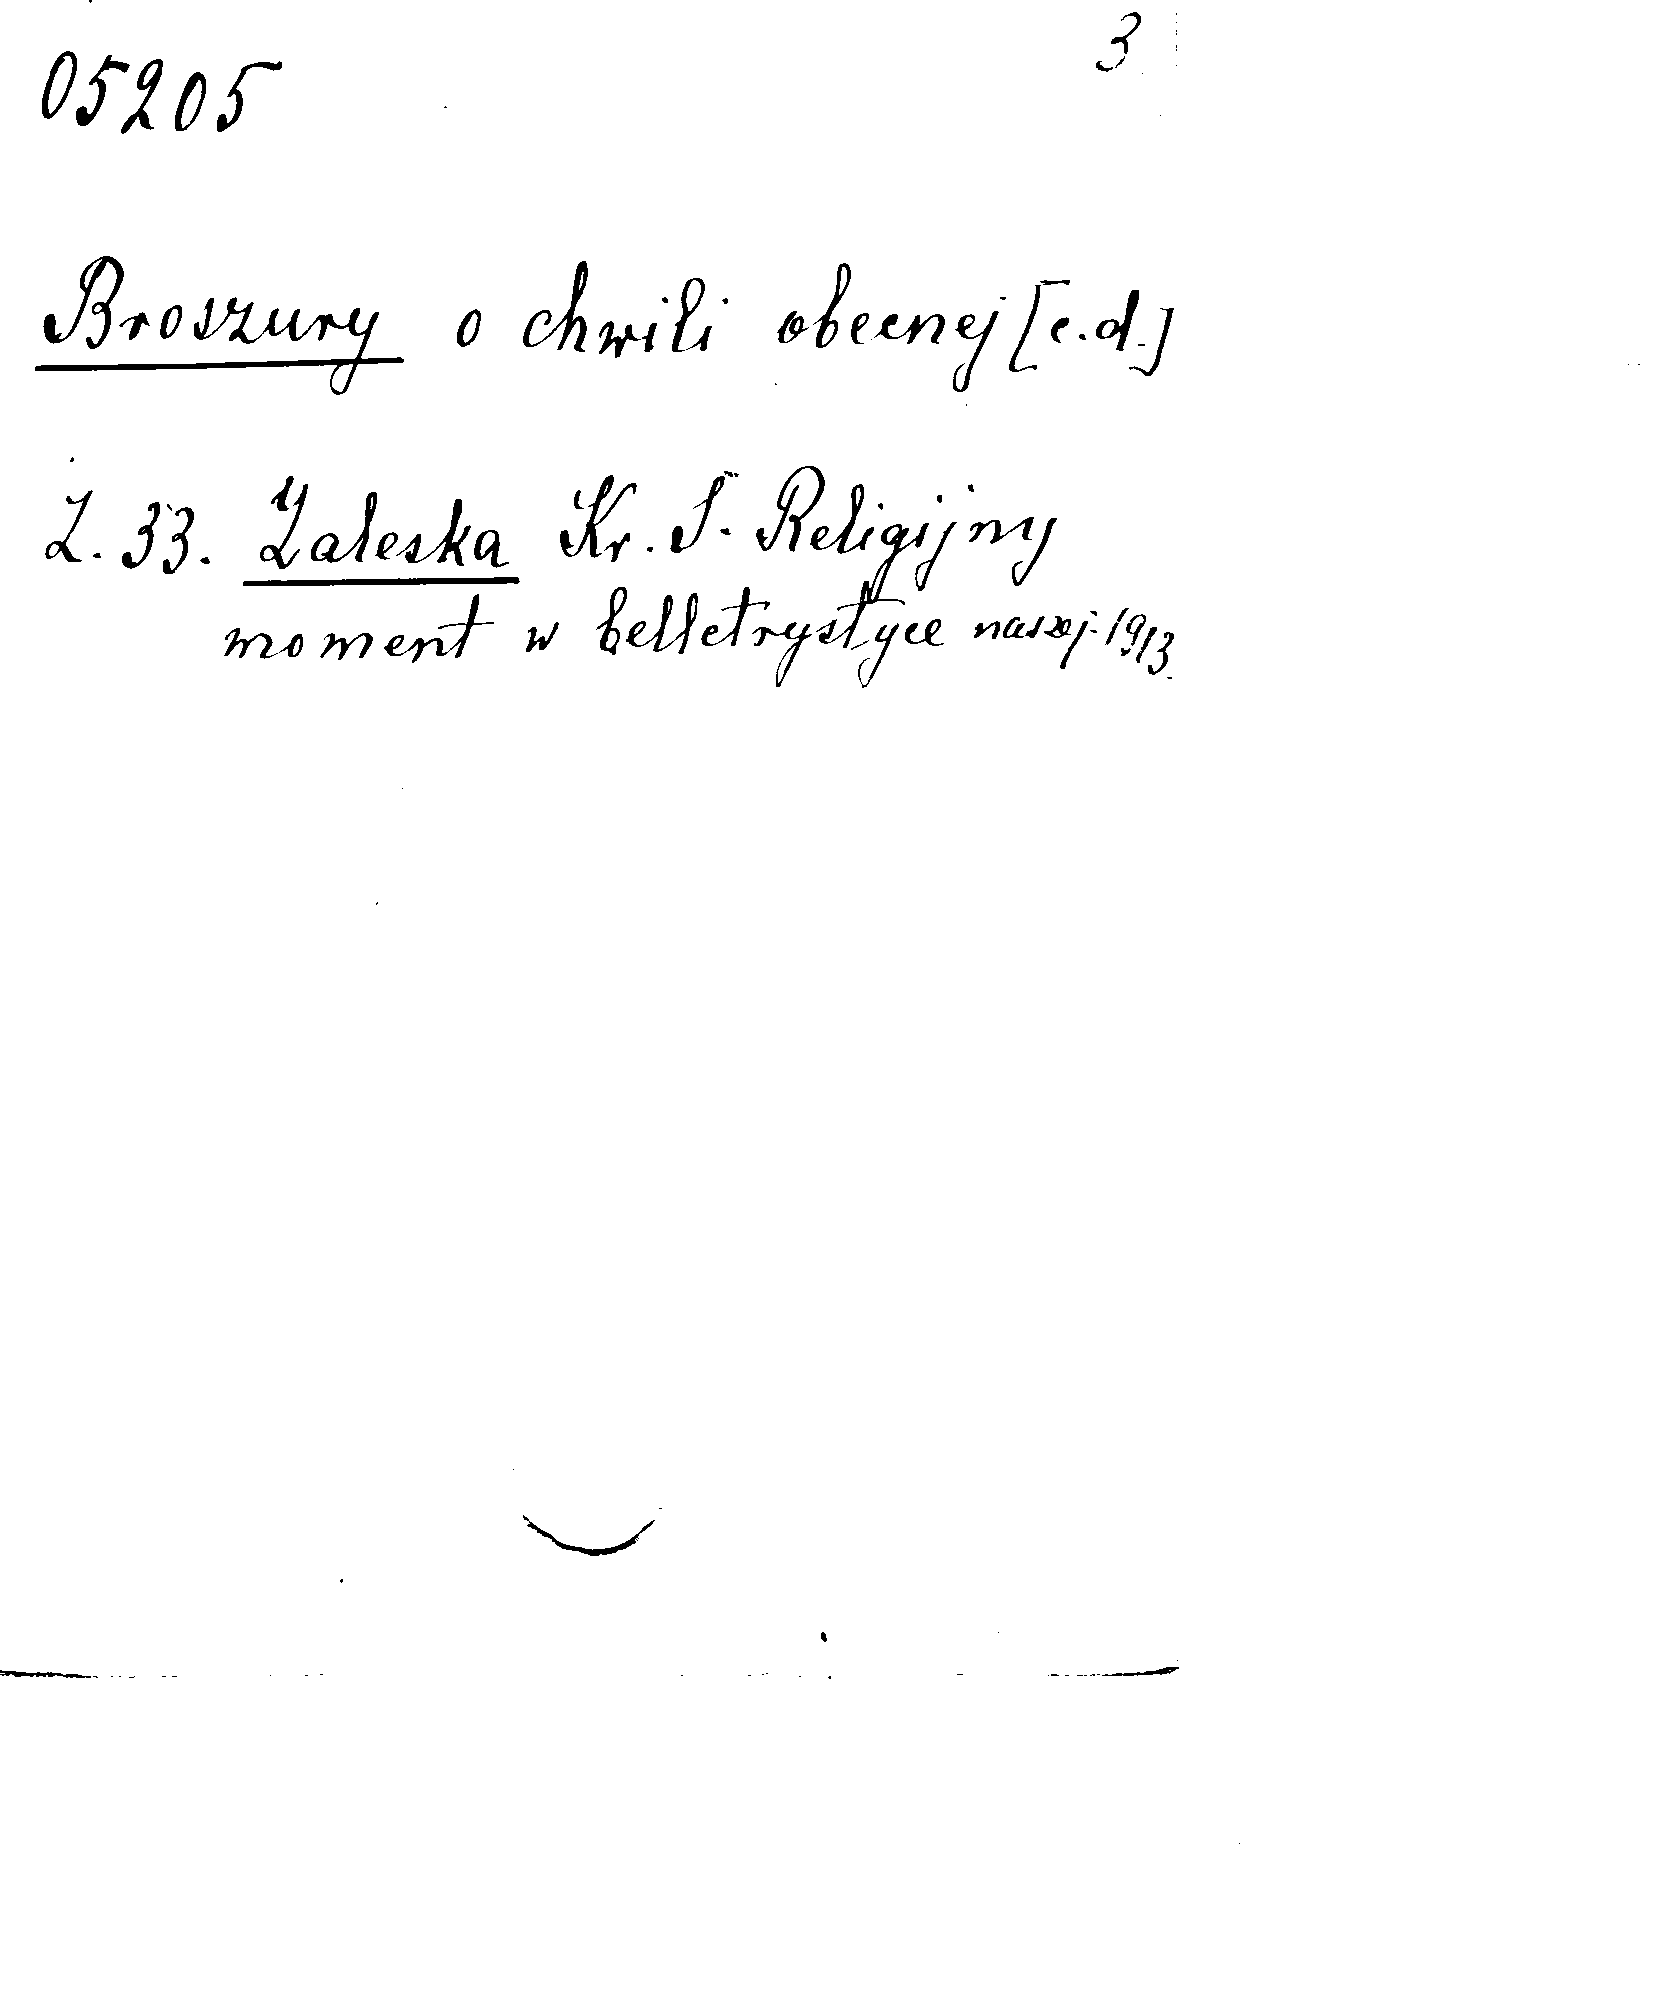 3
05205
Broszury o chwili obecnej [c.d.]
Z. 33. Zaleska Kr. S. Religijny
moment w belletrystyce naszej. 1913